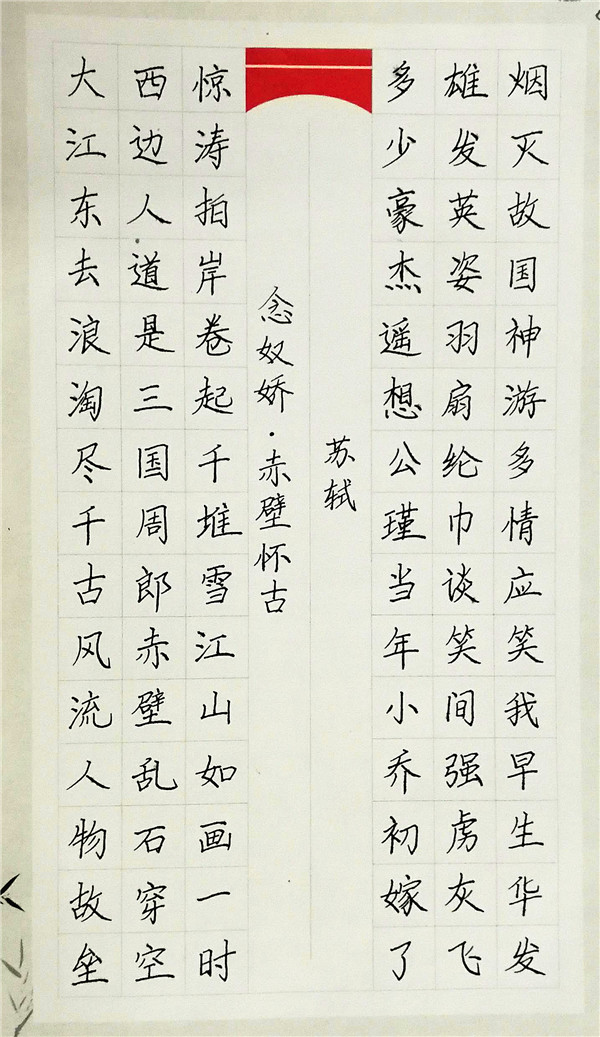 大江东去浪淘尽千古风流人物故垒
西边人道是三国周郎赤壁乱石穿空
惊涛拍岸卷起千堆雪江山如画一时
念奴娇·赤壁怀古
苏轼
多少豪杰遥想公瑾当年小乔初嫁了
雄发英姿羽扇纶巾谈笑间强虏灰飞
烟灭故国神游多情应笑我早生华发